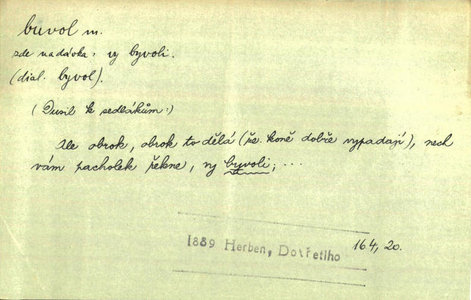 buvol m.
zde nadávka: vy byvoli.
(dial. byvol).
(Dusil k sedlákům:)
Ale obrok, obrok to dělá (že koně dobře vypadají), nech
vám pacholek řekne, vy byvoli; ...
1889 Herben, Dotřetího 164, 20.